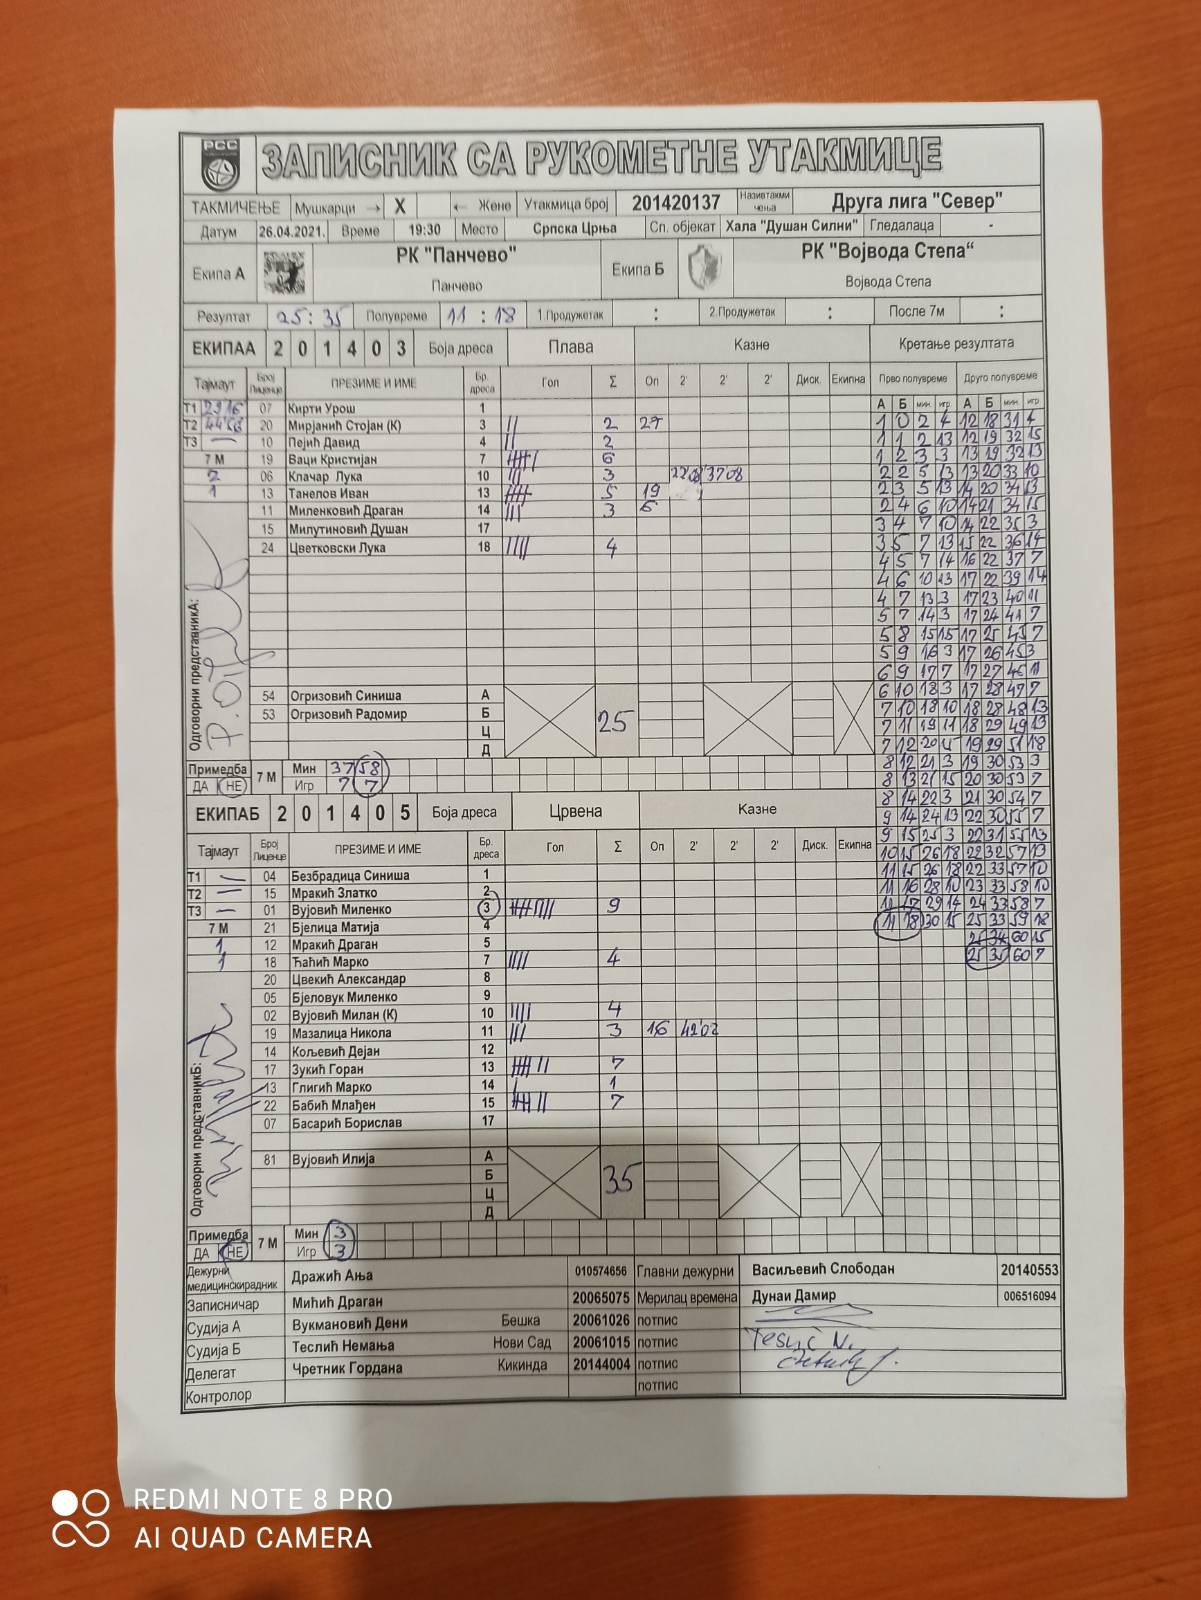 РСС
ЗАПИСНИК СА РУКОМЕТНЕ УТАКМИЦЕ
ТАКМИЧЕЊЕ Мушкарци → X ← Жене Утакмица број 201420137 Назив такмичења Друга лига "Север"
Датум 26.04.2021. Време 19:30 Место Српска Црња Сп. објекат Хала "Душан Силни" Гледалаца -
Екипа А РК "Панчево" Панчево Екипа Б РК "Војвода Степа“ Војвода Степа
Резултат 25:35 Полувреме 11:18 1.Продужетак : 2.Продужетак : После 7м :
ЕКИПАА 2 0 1 4 0 3 Боја дреса Плава Казне Кретање резултата
Тајмаут Број Лиценце ПРЕЗИМЕ И ИМЕ Бр. дреса Гол Σ Оп 2' 2' 2' Диск. Екипна Прво полувреме Друго полувреме
А Б мин. игр А Б мин. игр.
T1 2916 07 Кирти Урош 1
T2 20 Мирјанић Стојан (К) 3 2 27
T3 10 Пејић Давид 4 2
7 М 19 Ваци Кристијан 7 6
2 06 Клачар Лука 10 3 3708
1 13 Танелов Иван 13 5 19
11 Миленковић Драган 14 3 6
15 Милутиновић Душан 17
24 Цветковски Лука 18 4
Одговорни представникА:
54 Огризовић Синиша А
53 Огризовић Радомир Б 25
Ц
Д
Примедба 7 М Мин 37 58
ДА НЕ Игр 7 7
1 0 2 4 12 18 31 4
1 1 2 13 12 19 32 15
1 2 3 3 13 19 32 13
2 2 5 13 13 20 33 10
2 3 5 13 14 20 34 13
2 4 6 10 14 21 34 15
3 4 7 10 14 22 35 3
3 5 7 13 15 22 36 14
4 5 7 14 16 22 37 7
4 6 10 13 17 22 39 14
4 7 13 3 17 23 40 11
5 7 14 3 17 24 41 7
5 8 15 15 17 25 45 7
5 9 16 3 17 26 45 3
6 9 17 7 17 27 46 11
6 10 18 3 17 28 47 7
7 10 18 10 18 28 48 13
7 11 19 11 18 29 49 13
7 12 20 15 19 29 51 18
8 12 21 3 19 30 53 3
8 13 21 15 20 30 53 7
8 14 22 3 21 30 54 7
9 14 24 13 22 30 55 7
9 15 25 3 22 31 55 13
10 15 26 18 22 32 57 13
11 15 26 18 22 33 57 10
11 16 28 10 23 33 58 10
11 17 29 14 24 33 58 7
11 18 30 15 25 33 59 18
25 34 60 15
25 35 60 7
ЕКИПАБ 2 0 1 4 0 5 Боја дреса Црвена Казне
Тајмаут Број Лиценце ПРЕЗИМЕ И ИМЕ Бр. дреса Гол Σ Оп 2' 2' 2' Диск. Екипна
T1 04 Безбрадица Синиша 1
T2 15 Мракић Златко 2
T3 01 Вујовић Миленко 3 9
7 М 21 Бјелица Матија 4
1 12 Мракић Драган 5
1 18 Ћаћић Марко 7 4
20 Цвекић Александар 8
05 Бјеловук Миленко 9
02 Вујовић Милан (К) 10 4
19 Мазалица Никола 11 3 16 42'02
14 Кољевић Дејан 12
17 Зукић Горан 13 7
13 Глигић Марко 14 1
22 Бабић Млађен 15 7
07 Басарић Борислав 17
Одговорни представникБ:
81 Вујовић Илија А
Б 35
Ц
Д
Примедба 7 М Мин 3
ДА НЕ Игр 3
Дежурни медицинскирадник Дражић Ања 010574656 Главни дежурни Васиљевић Слободан 20140553
Записничар Мићић Драган 20065075 Мерилац времена Дунаи Дамир 006516094
Судија А Вукмановић Дени Бешка 20061026 потпис
Судија Б Теслић Немања Нови Сад 20061015 потпис Teslić N.
Делегат Чретник Гордана Кикинда 20144004 потпис
Контролор потпис
REDMI NOTE 8 PRO
AI QUAD CAMERA